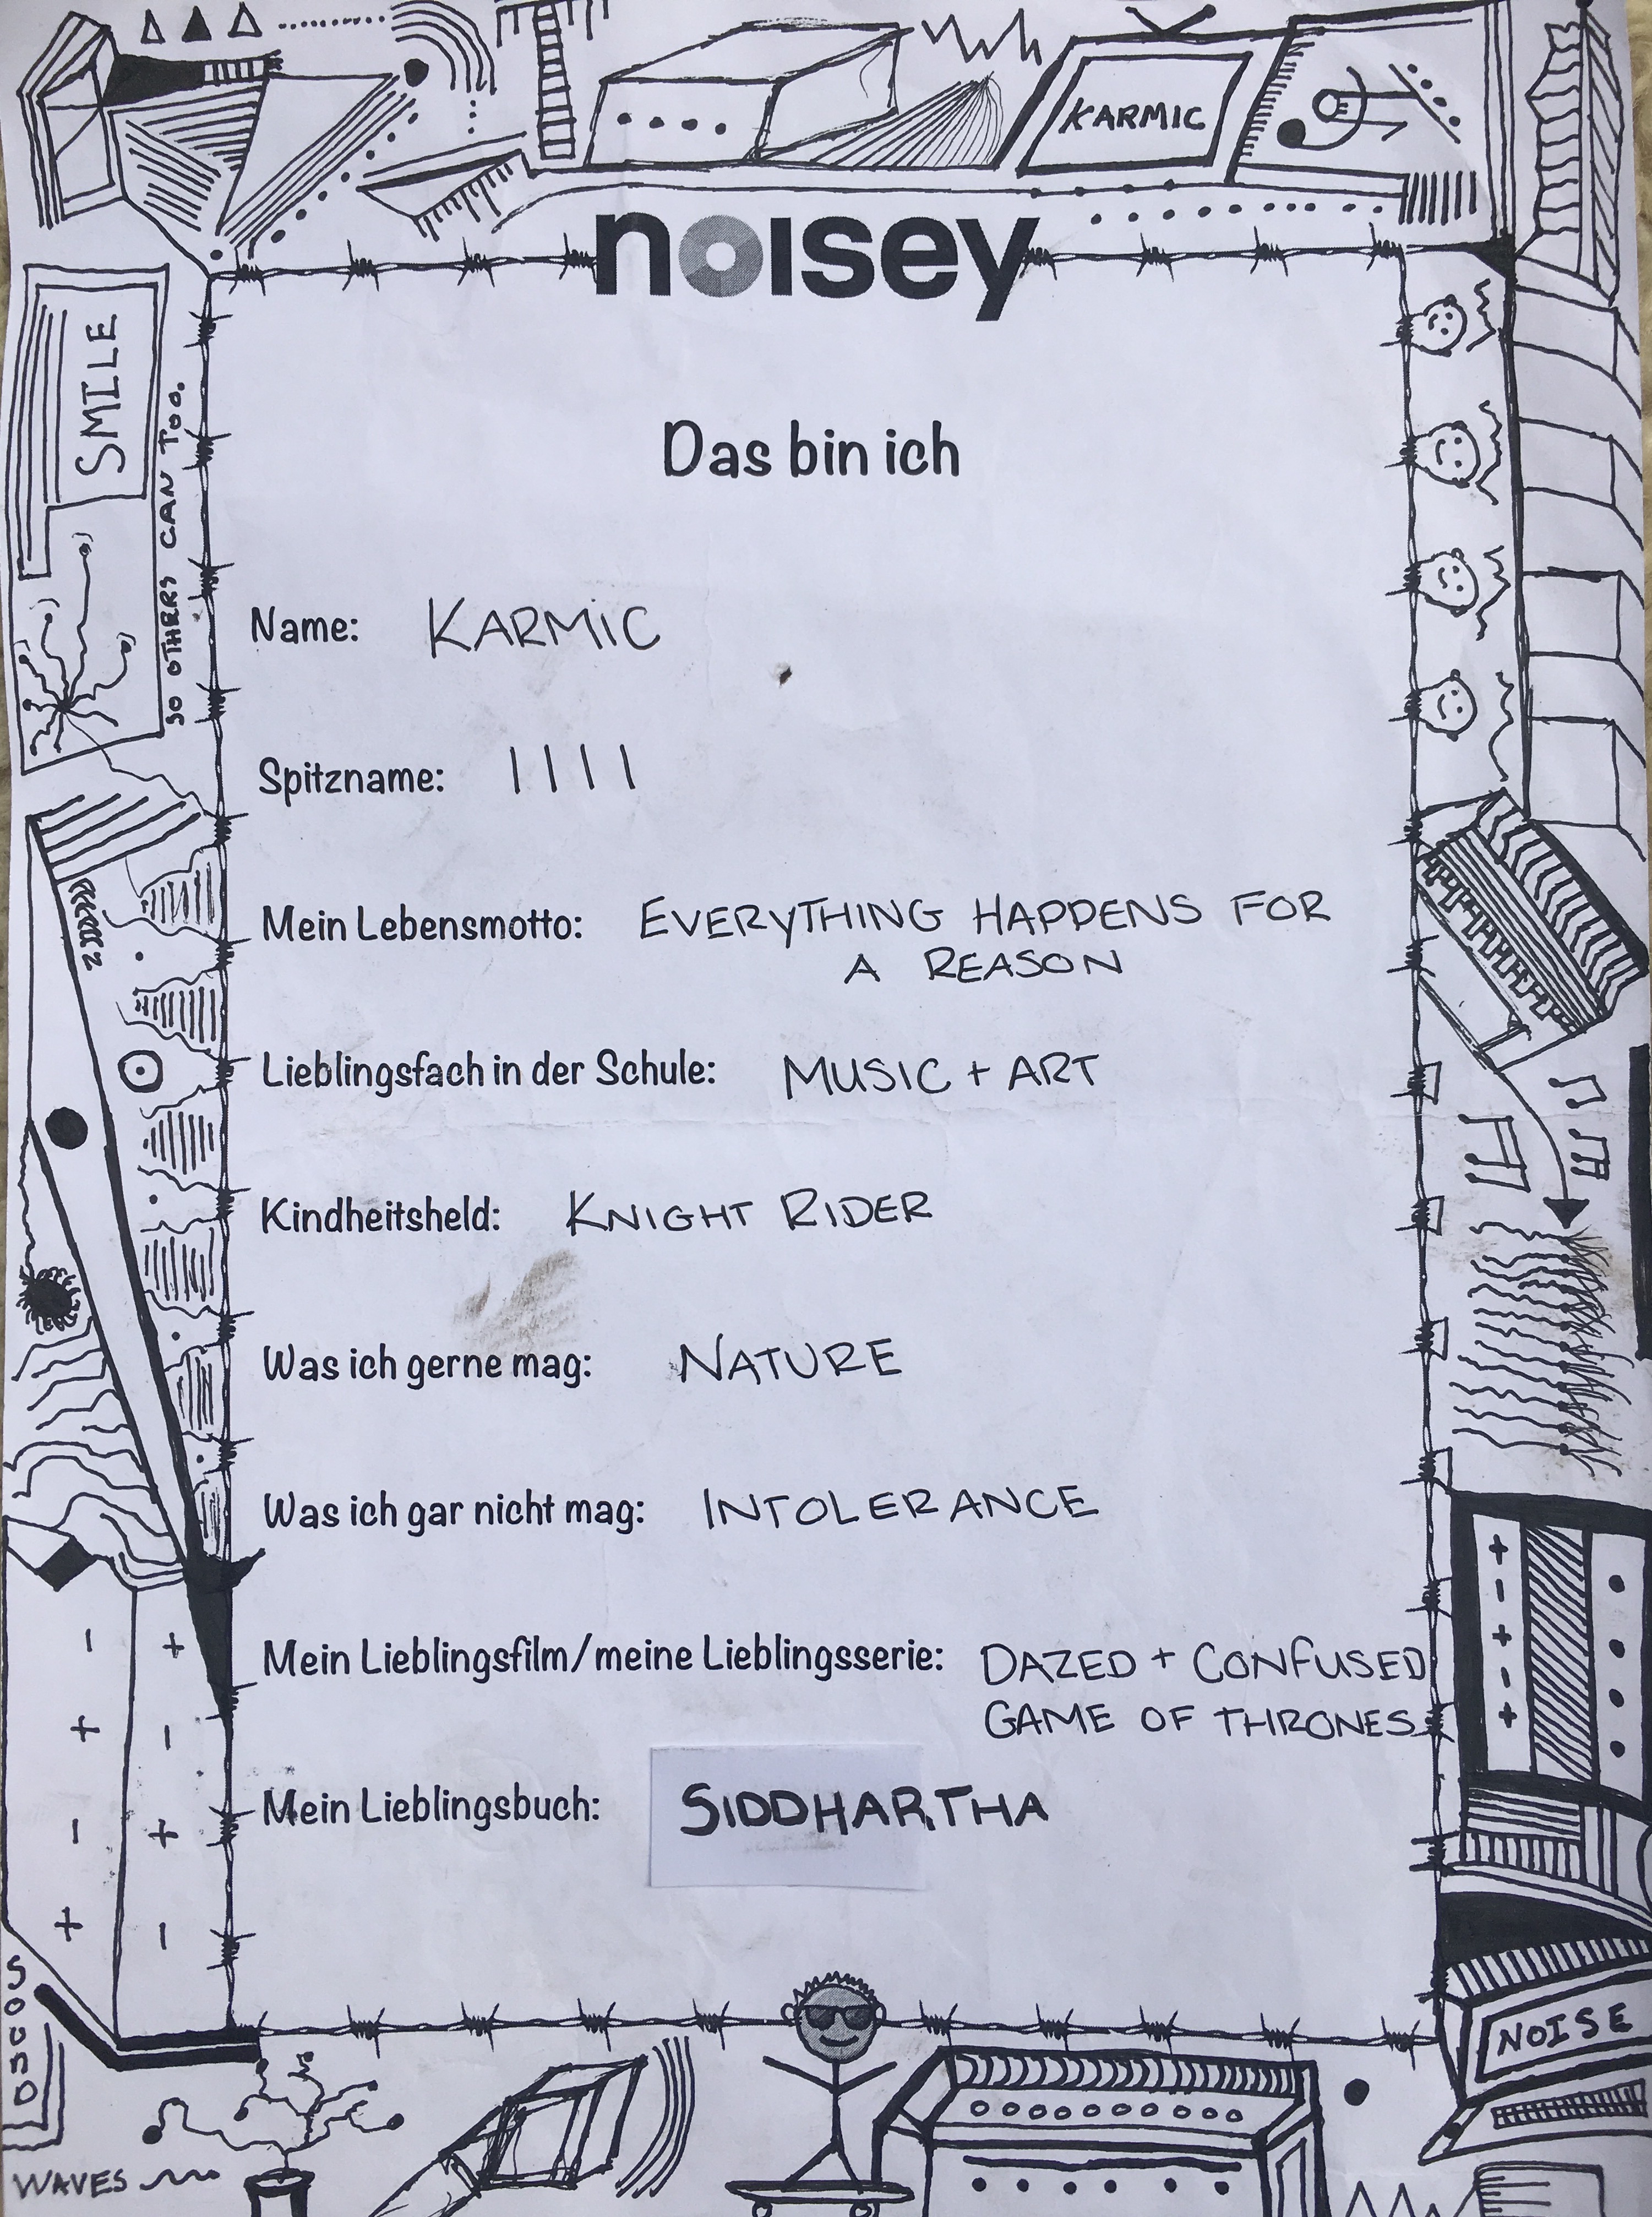 KARMIC
noisey
SMILE
SO OTHERS CAN TOO.
Das bin ich
Name: KARMIC
Spitzname: | | | |
Mein Lebensmotto: EVERYTHING HAPPENS FOR
A REASON
Lieblingsfach in der Schule: MUSIC + ART
Kindheitsheld: KNIGHT RIDER
Was ich gerne mag: NATURE
Was ich gar nicht mag: INTOLERANCE
Mein Lieblingsfilm/meine Lieblingsserie: DAZED + CONFUSED
GAME OF THRONES
Mein Lieblingsbuch: SIDDHARTHA
SOUND
WAVES
NOISE